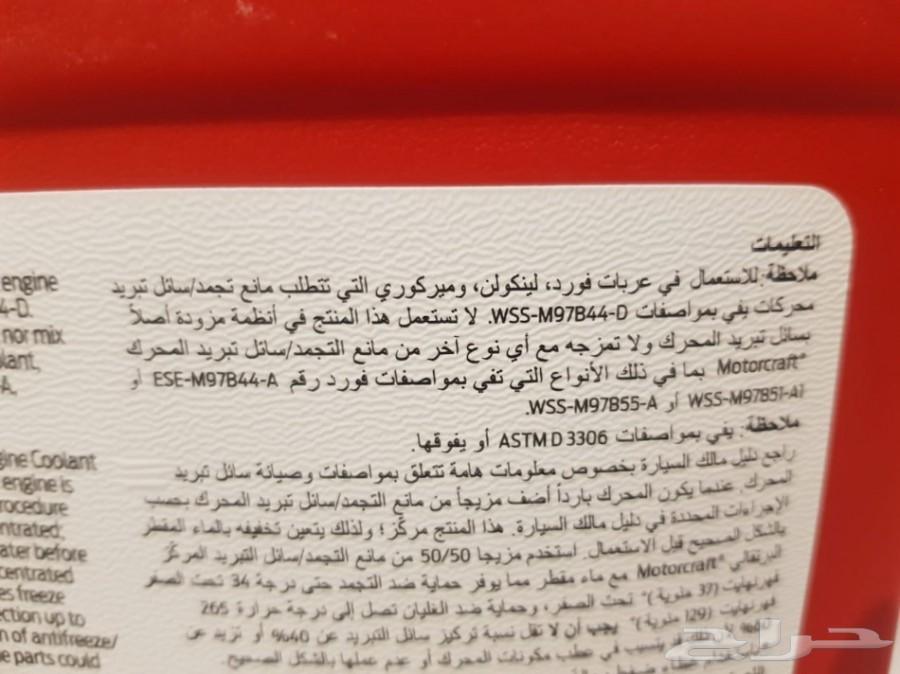 التعليمات
ملاحظة: للاستعمال في عربات فورد، لينكولن، وميركوري التي تتطلب مانع تجمد/سائل تبريد
محركات يفي بمواصفات WSS-M97B44-D. لا تستعمل هذا المنتج في أنظمة مزودة أصلاً
بسائل تبريد المحرك ولا تمزجه مع أي نوع آخر من مانع التجمد/سائل تبريد المحرك
Motorcraft® بما في ذلك الأنواع التي تفي بمواصفات فورد رقم ESE-M97B44-A أو
WSS-M97B51-A1 أو WSS-M97B55-A.
ملاحظة: يفي بمواصفات ASTM D 3306 أو يفوقها.
راجع دليل مالك السيارة بخصوص معلومات هامة تتعلق بمواصفات وصيانة سائل تبريد
المحرك. عندما يكون المحرك بارداً أضف مزيجاً من مانع التجمد/سائل تبريد المحرك بحسب
الإجراءات المحددة في دليل مالك السيارة. هذا المنتج مركّز؛ ولذلك يتعين تخفيفه بالماء المقطر
بالشكل الصحيح قبل الاستعمال. استخدم مزيجا 50/50 من مانع التجمد/سائل التبريد المركّز
البرتقالي Motorcraft® مع ماء مقطر مما يوفر حماية ضد التجمد حتى درجة 34 تحت الصفر
فهرنهايت (37 مئوية)° تحت الصفر، وحماية ضد الغليان تصل إلى درجة حرارة 265
فهرنهايت (129 مئوية)° يجب أن لا تقل نسبة تركيز سائل التبريد عن 40% أو تزيد عن
60% يتسبب في عطب مكونات المحرك أو عدم عملها بالشكل الصحيح.
engine
4-D.
nor mix
lant,
A,
gine Coolant
engine is
rocedure
ntrated;
ater before
centrated
es freeze
ection up to
n of antifreeze/
e parts could
حراج